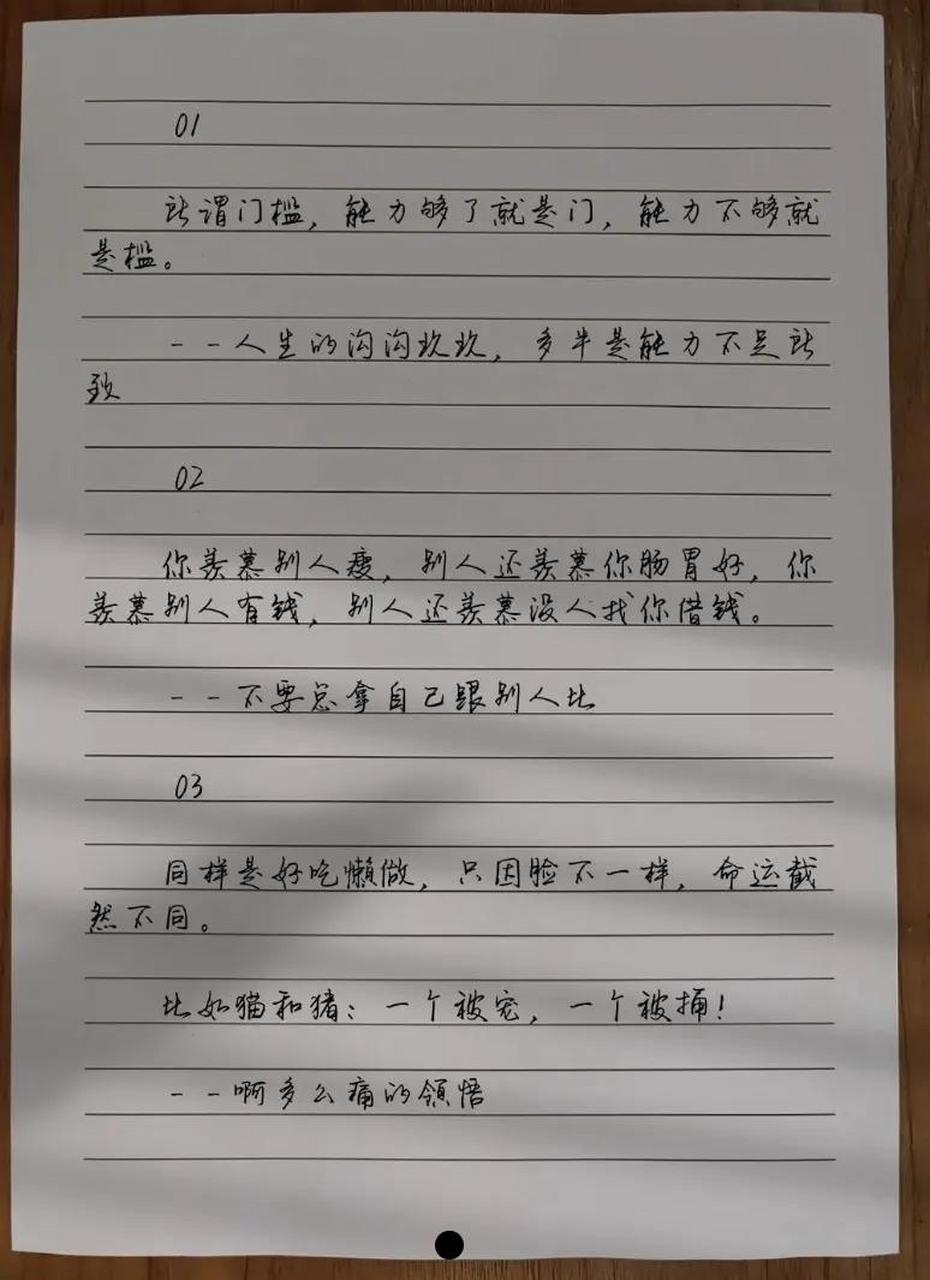 01
所谓门槛，能力够了就是门，能力不够就
是槛。
--人生的沟沟坎坎，多半是能力不足所
致
02
你羡慕别人瘦，别人还羡慕你肠胃好，你
羡慕别人有钱，别人还羡慕没人找你借钱。
--不要总拿自己跟别人比
03
同样是好吃懒做，只因脸不一样，命运截
然不同。
比如猫和猪：一个被宠，一个被捅！
--啊多么痛的领悟